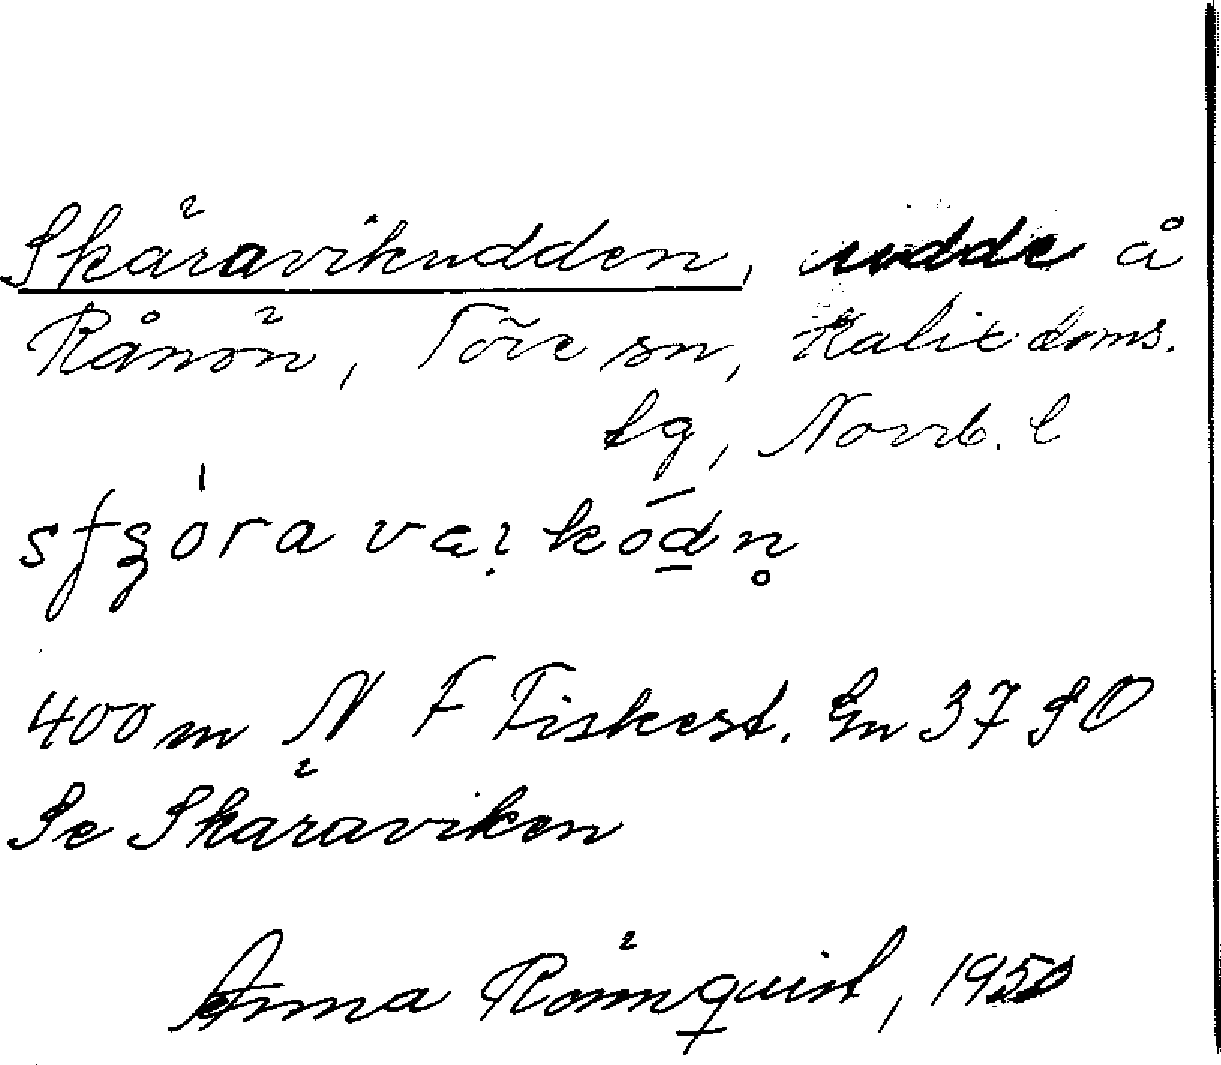 Skäravikudden, udde å
Rånön, Töre sn, Kalix doms.
tg, Norrb. l
400 m N F Fiskest. Gn 3790
Se Skäraviken
Anna Rönnquist, 1950